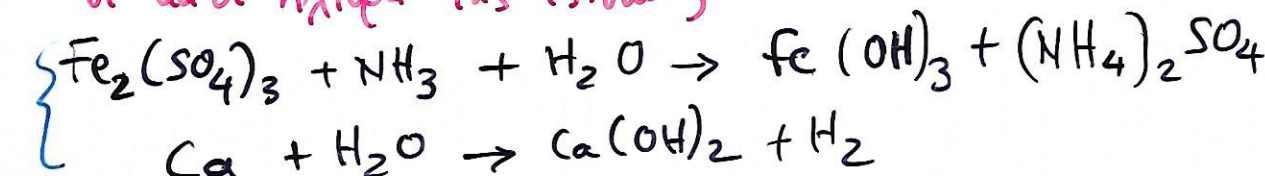 Fe₂(SO₄)₃ + NH₃ + H₂O → Fe(OH)₃ + (NH₄)₂SO₄
Ca + H₂O → Ca(OH)₂ + H₂